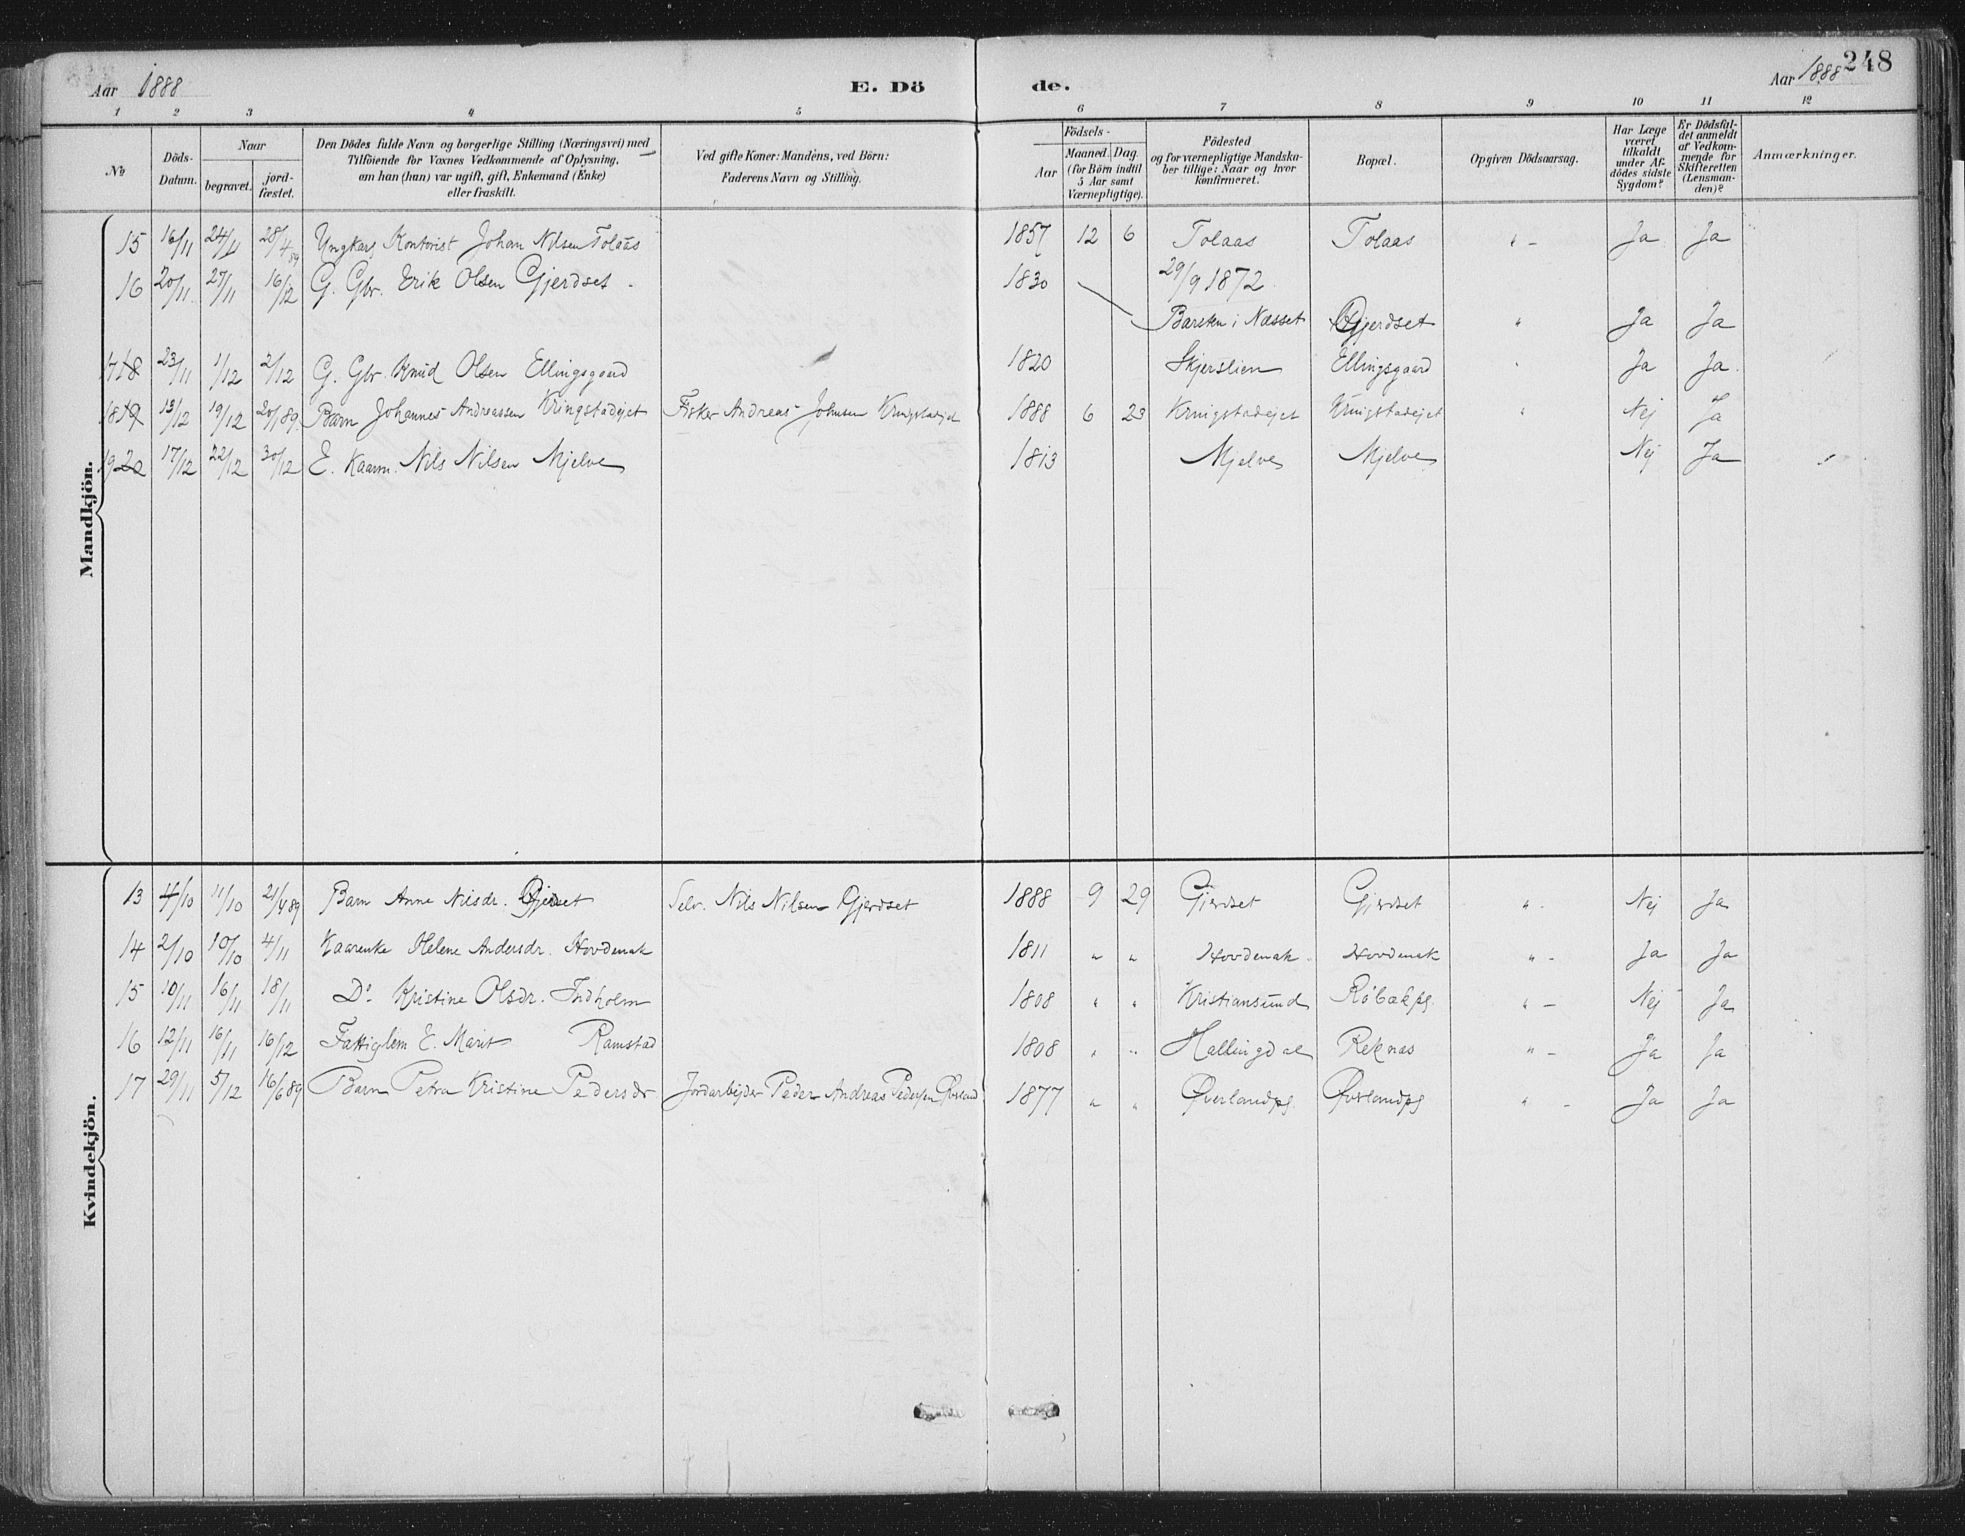 Aar 1888 E. Dö de. Aar 1888 248
1 2 3 4 5 6 7 8 9 10 11 12
No
Döds-Datum.
Naar begravet. jord-fæstet.
Den Dödes fulde Navn og borgerlige Stilling (Næringsvei) med
Tilföiende for Voxnes Vedkommende af Oplysning,
om han (hun) var ugift, gift, Enkemand (Enke)
eller fraskilt.
Ved gifte Koner: Mandens, ved Börn:
Faderens Navn og Stilling.
Födsels-
Aar Maaned. Dag.
(for Börn indtil
5 Aar samt
Værnepligtige).
Födested
og for værnepligtige Mandska-
ber tillige: Naar og hvor
konfirmeret.
Bopæl.
Opgiven Dödsaarsag.
Har Læge
været
tilkaldt
under Af-
dödes sidste
Sygdom?
Er Dödsfal-
det anmeldt
af Vedkom-
mende for
Skifteretten
(Lensman-
den)?
Anmærkninger.
Mandkjön.
15 16/11 24/11 28/4 89 Ungkarl Kontorist Johan Nilsen Tolaas 1857 12 6 Tolaas Tolaas " - Ja Ja
16 20/11 27/11 16/12 G. Gbr. Erik Olsen Gjerdset - 1830 29/9 1872
Barsten i Næsset Gjerdset " Ja Ja
17 18 23/11 1/12 2/12 G. Gbr. Knud Olsen Ellingsgaard 1820 Skjerslien Ellingsgaard " Ja Ja
18 19 13/12 19/12 20/1 89. Barn Johannes Andreassen Kringstadejet Fisker Andreas Johnsen Kringstadejet 1888 6 23 Kringstadejet Kringstadejet " Nej Ja
19 20 17/12 22/12 30/12 E. Kaarm. Nils Nilsen Mjelve 1813 Mjelve Mjelve Nej Ja
Kvindekjön.
13 4/10 11/10 21/4 89 Barn Anne Nilsdr. Gjerdset Selv. Nils Nilsen Gjerdset 1888 9 29 Gjerdset Gjerdset " - Nej Ja
14 2/10 10/10 4/11 Kaarenke Helene Andersdr. Hovdenak 1811 " " Hovdenak Hovdenak " - Ja Ja
15 10/11 16/11 18/11 Do Kristine Olsdr. Indholm 1808 " " Kristiansund Röbækpg. " - Nej Ja
16 12/11 16/11 16/12 Fattiglem E. Marit Ramstad 1808 " " Hallingdal Reknæs " - Ja Ja
17 29/11 5/12 16/6 89 Barn Petra Kristine Pedersdr Jordarbejder Peder Andreas Pedersen Øverland 1877 " " Øverlandpg. Øverlandpg " - Ja Ja